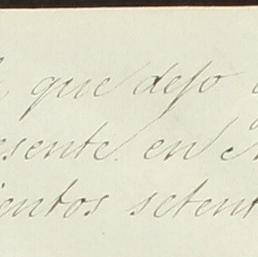 que dejo
esente en
ientos setent